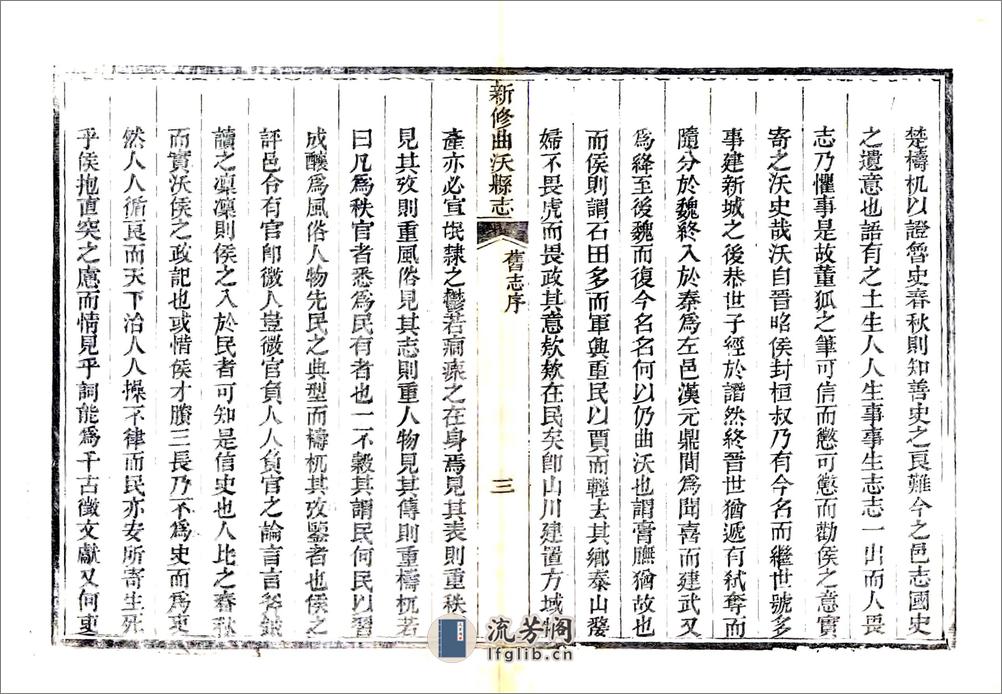 楚檮杌以證魯史春秋則知善史之良難今之邑志國史
之遺意也語有之土生人人生事事生志志一出而人畏
志乃懼事是故董狐之筆可信而懲可懲而勸侯之意實
寄之沃史哉沃自晉昭侯封桓叔乃有今名而繼世號多
事建新城之後恭世子經於譖然終晉世猶遞有弑奪而
隨分於魏終入於秦爲左邑漢元鼎間爲聞喜而建武又
爲絳至後魏而復今名名何以仍曲沃也謂膏膴猶故也
而侯則謂石田多而軍興重民以賈而輕去其鄉泰山嫠
婦不畏虎而畏政其意欸欸在民矣卽山川建置方域物
產亦必宣氓隸之鬱若痌瘝之在身焉見其表則重秩官
見其攷則重風俗見其志則重人物見其傳則重檮杌若
曰凡爲秩官者悉爲民有者也一不穀其謂民何民以習
成釀爲風俗人物先民之典型而檮杌其攷鑒者也侯之
評邑合有官卽徵人豈徵官負人人負官之論言言斧鉞
讀之凜凜則侯之入於民者可知是信史也人比之春秋
而實沃侯之政記也或惜侯才賸三長乃不爲史而爲吏
然人人循良而天下治人人操不律而民亦安所寄生死
乎侯抱直突之慮而情見乎詞能爲千古徵文獻又何吏
新修曲沃縣志
舊志序
三
流芳閣
lfglib.cn